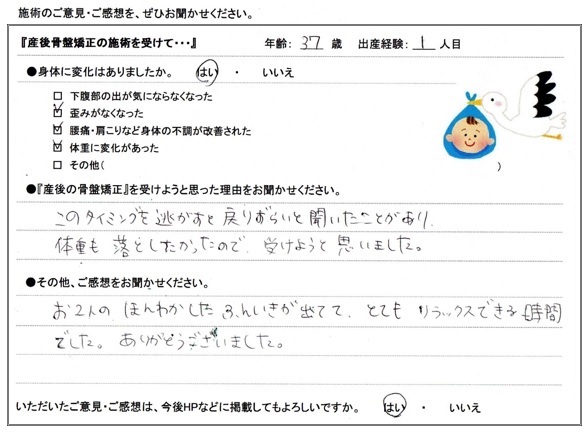 施術のご意見・ご感想を、ぜひお聞かせください。
『産後骨盤矯正の施術を受けて・・・』 年齢： 37 歳 出産経験： 1 人目
●身体に変化はありましたか。 はい ・ いいえ
□ 下腹部の出が気にならなくなった
☑ 歪みがなくなった
☑ 腰痛・肩こりなど身体の不調が改善された
☑ 体重に変化があった
□ その他( )
●『産後の骨盤矯正』を受けようと思った理由をお聞かせください。
このタイミングを逃がすと戻りずらいと聞いたことがあり、
体重も落としたかったので、受けようと思いました。
●その他、ご感想をお聞かせください。
お2人のほんわかしたふんいきが出てて、とてもリラックスできる時間
でした。ありがとうございました。
いただいたご意見・ご感想は、今後HPなどに掲載してもよろしいですか。 はい ・ いいえ